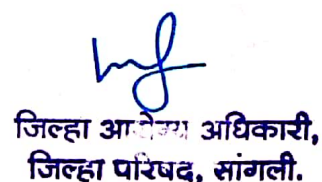 जिल्हा आरोग्य अधिकारी,
जिल्हा परिषद, सांगली.